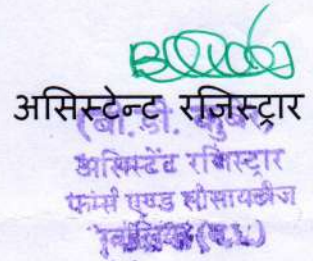 असिस्टेन्ट रजिस्ट्रार
(बी.डी.
असिस्टेंट रजिस्ट्रार
फर्म्स एण्ड सोसायटीज